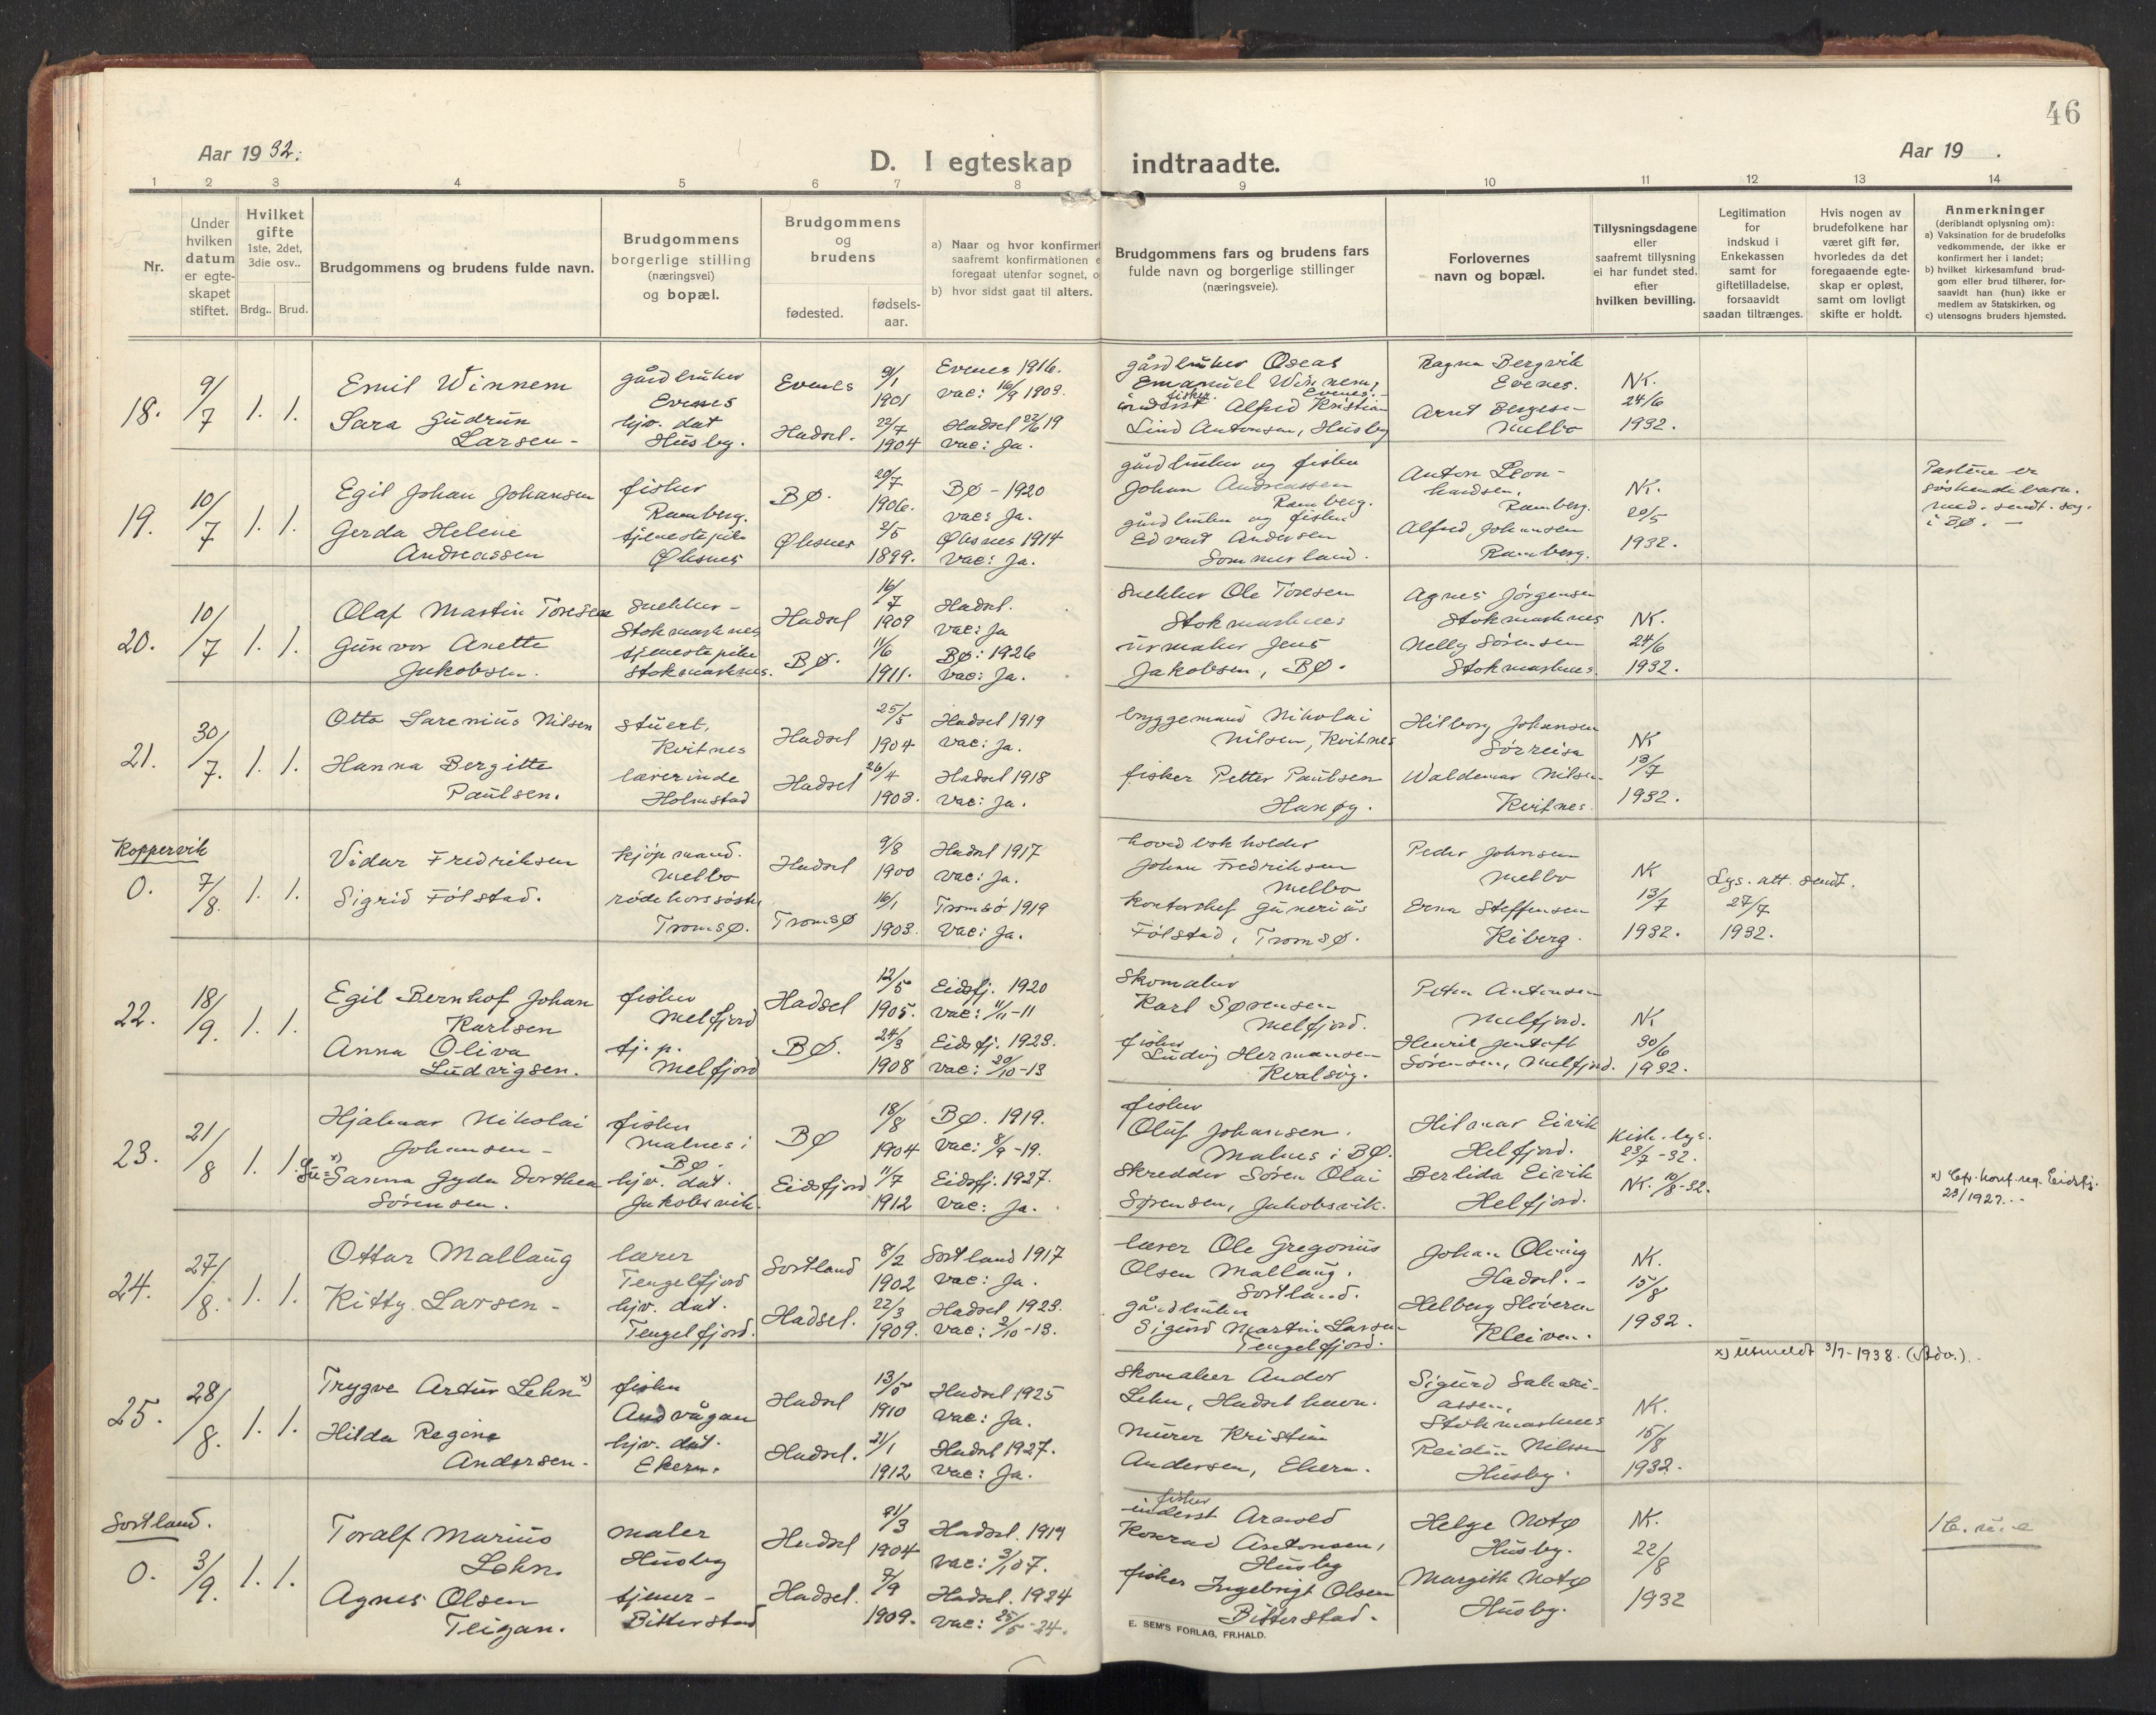 46
Aar 1932.
D. I egteskap indtraadte.
Aar 19 .
1 2 3 4 5 6 7 8 9 10 11 12 13 14
Nr.
Under
hvilken
datum
er egte-
skapet
stiftet.
Hvilket
gifte
1ste, 2det,
3die osv..
Brdg.. Brud.
Brudgommens og brudens fulde navn.
Brudgommens
borgerlige stilling
(næringsvei)
og bopæl.
Brudgommens
og
brudens
fødested.
fødsels-
aar.
a) Naar og hvor konfirmert
saafremt konfirmationen e
foregaat utenfor sognet, o
b) hvor sidst gaat til alters.
Brudgommens fars og brudens fars
fulde navn og borgerlige stillinger
(næringsveie).
Forlovernes
navn og bopæl.
Tillysningsdagene
eller
saafremt tillysning
ei har fundet sted,
efter
hvilken bevilling.
Legitimation
for
indskud i
Enkekassen
samt for
giftetilladelse,
forsaavidt
saadan tiltrænges.
Hvis nogen av
brudefolkene har
været gift før,
hvorledes da det
foregaaende egte-
skap er opløst,
samt om lovligt
skifte er holdt.
Anmerkninger
(deriblandt oplysning om):
a) Vaksination for de brudefolks
vedkommende, der ikke er
konfirmert her i landet;
b) hvilket kirkesamfund brud-
gom eller brud tilhører, for-
saavidt han (hun) ikke er
medlem av Statskirken, og
c) utensogns bruders hjemsted.
18.
9/7
1. 1.
Emil Winnem
Sara Gudrun
Larsen -
gårdbruker
Evenes
hjv. dat
Husby.
Evenes
Hadsel.
9/1
1901
22/7
1904
Evenes 1916.
vac: 16/9 1903.
Hadsel 22/6 19
vac: Ja.
gårdbruker Oseas
Emanuel Winnem,
Evenes. -
inderst fisker Alfred Kristian
Lind Antonsen, Husby
Ragna Bergvik
Evenes.
Arnt Bergesen
Melbo
NK.
24/6
1932.
19.
10/7
1. 1.
Egil Johan Johansen
Gerda Helene
Andreassen
fisker
Ramberg.
tjenestepike
Øksnes
BØ.
Øksnes
20/7
1906.
2/5
1899.
BØ - 1920
vac: Ja.
Øksnes 1914
vac: Ja.
gårdbruker og fisker
Johan Andreassen
Ramberg.
gårdbruker og fisker
Edvart Andersen
Sommerland.
Anton Leon-
hardsen,
Ramberg.
Alfred Johansen
Ramberg.
NK.
20/5
1932.
Partene er
søskendebarn.
med. sendt. sog.
i BØ. -
20.
10/7
1. 1.
Olaf Martin Toresen
Gunvor Anette
Jakobsen.
snekker -
Stokmarknes
tjenestepike
Stokmarknes.
Hadsel
BØ.
16/7
1909
11/6
1911.
Hadsel.
vac: Ja
BØ: 1926
vac: Ja.
snekker Ole Toresen
Stokmarknes
urmaker Jens
Jakobsen, BØ.
Agnes Jørgensen
Stokmarknes
Nelly Sørensen
Stokmarknes.
NK.
24/6
1932.
21.
30/7.
1. 1.
Otto Sarenius Nilsen
Hanna Bergitte
Paulsen.
stuert,
Kvitnes
lærerinde
Holmstad
Hadsel
Hadsel
25/5
1904
26/4
1903.
Hadsel 1919
vac: Ja.
Hadsel 1918
vac: Ja.
bryggemand Nikolai
Nilsen, Kvitnes
fisker Petter Paulsen
Hanøy.
Hilborg Johansen
Sørreisa
Waldemar Nilsen
Kvitnes.
NK
13/7
1932.
Koppervik
0.
7/8.
1. 1.
Vidar Fredriksen
Sigrid Følstad.
kjøpmand.
Melbo
rødekorssøster
Tromsø.
Hadsel
Tromsø
9/8
1900
16/1
1903.
Hadsel 1917
vac: Ja.
Tromsø 1919
vac: Ja.
hovedbokholder
Johan Fredriksen
Melbo
Kontorchef Gunerius
Følstad, Tromsø.
Peder Johnsen
Melbo
Erna Steffensen
Kiberg.
NK
13/7
1932.
Lys. att. sendt.
27/7
1932.
22.
18/9.
1. 1.
Egil Bernhof Johan
Karlsen
Anna Oliva
Ludvigsen.
fisker
Melfjord
tj. p.
Melfjord
Hadsel
BØ.
12/5
1905.
24/3
1908
Eidsfj. 1920
vac: 11/11-11
Eidsfj. 1923.
vac: 20/10-13
skomaker
Karl Sørensen
Melfjord.
fisker
Ludvig Hermansen
Kvalsøy.
Petra Antonsen
Melfjord.
Henrik Jentoft
Sørensen, Melfjord.
NK
30/6
1932.
23.
21/8
1. 1.
Hjalmar Nikolai
Johansen -
x) Sanna Gyda Dorthea
Sørensen.
fisker
Malnes i
BØ.
hjv. dat.
Jakobsvik.
BØ
Eidsfjord
18/8
1904
11/7
1912
BØ. 1919.
vac: 8/9 -19.
Eidsfj. 1927.
vac: Ja.
fisker
Oluf Johansen.
Malnes i BØ.
Skredder Søren Olai
Sørensen, Jakobsvik.
Hilmar Eivik
Helfjord.
Berlida Eivik
Helfjord.
Kirk. lys.
23/7 -32.
NK. 10/8-32.
x) konf. reg. Eidsfj.
23/1927. -
24.
27/8.
1. 1.
Ottar Mallaug
Kitty Larsen -
lærer
Tengelfjord
hjv. dat.
Tengelfjord.
Sortland
Hadsel.
8/2
1902
22/3
1909.
Sortland 1917
vac: Ja.
Hadsel 1923.
vac: 2/10-13.
lærer Ole Gregorius
Olsen Mallaug.
Sortland.
gårdbruker
Sigurd Martin Larsen
Tengelfjord.
Johan Olving
Hadsel. -
Helberg Sløveren
Kleiven.
NK.
15/8
1932.
25.
28/8.
1. 1.
Trygve Artur Lehn x)
Hilda Regine
Andersen.
fisker
Andvågan
hjv. dat.
Ekern.
Hadsel
Hadsel.
13/5
1910
21/1
1912
Hadsel 1925
vac: Ja.
Hadsel 1927.
vac: Ja.
skomaker Ander
Lehn, Hadselhavn.
Murer Kristian
Andersen, Ekern.
Sigurd Sakari-
assen,
Stokmarknes
Reidun Nilsen
Husby.
NK.
15/8
1932.
x) Utmeldt 3/7-1938. (Adv.).
Sortland.
0.
3/9.
1. 1.
Toralf Marius
Lehn.
Agnes Olsen
Teigan.
maler
Husby
tjener -
Bitterstad
Hadsel
Hadsel.
21/3
1904
7/9
1909.
Hadsel. 1919
vac: 3/1 07.
Hadsel. 1924
vac: 25/5 -24.
inderst fisker Arnold
Konrad Antonsen,
Husby
fisker Ingebrigt Olsen
Bitterstad.
Helge Notø
Husby.
Margith Notø
Husby.
NK.
22/8
1932
E. SEM'S FORLAG, FR.HALD.